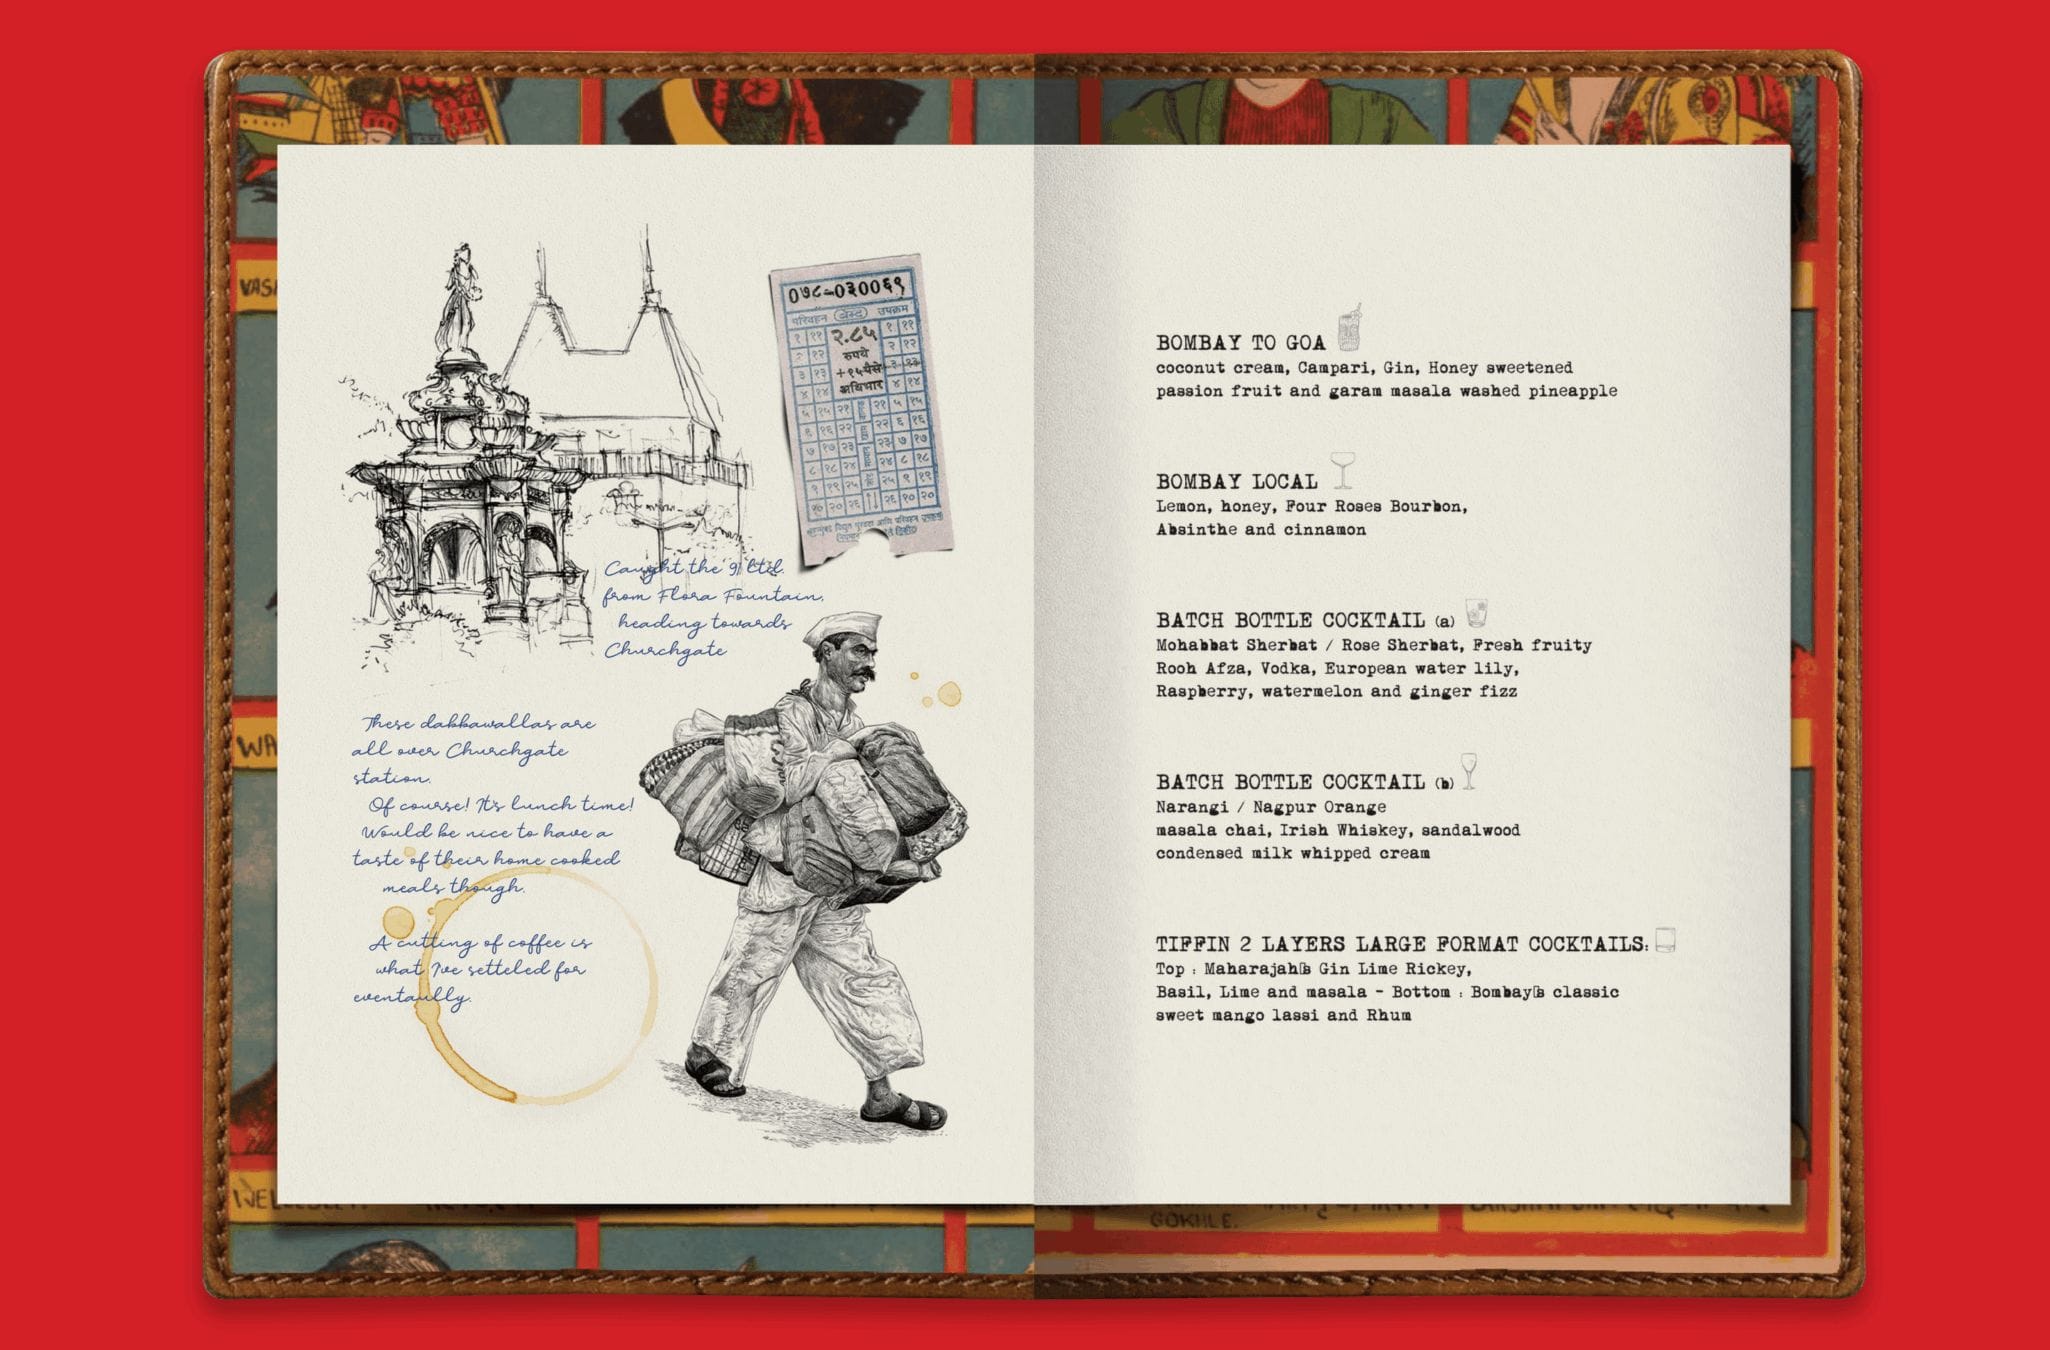 VASA
WA
GOKHLE.
०७८-०३००६९
परिवहन बेस्ट उपक्रम
२.८५
रुपये
+१५पैसे
अधिभार
१ ११ १ ११
२ १२ २ १२
३ १३ ३ १३
४ १४ ४ १४
५ १५ २१ २१ ५ १५
६ १६ २२ २२ ६ १६
७ १७ २३ २३ ७ १७
८ १८ २४ २४ ८ १८
९ १९ २५ २५ ९ १९
१० २० २६ २६ १० २०
Caught the 91 Ltd.
from Flora Fountain,
heading towards
Churchgate
These dabbawallas are
all over Churchgate
station.
Of course! It's lunch time!
Would be nice to have a
taste of their home cooked
meals though.
A cutting of coffee is
what I've setteled for
eventaully.
BOMBAY TO GOA
coconut cream, Campari, Gin, Honey sweetened
passion fruit and garam masala washed pineapple
BOMBAY LOCAL
Lemon, honey, Four Roses Bourbon,
Absinthe and cinnamon
BATCH BOTTLE COCKTAIL (a)
Mohabbat Sherbat / Rose Sherbat, Fresh fruity
Rooh Afza, Vodka, European water lily,
Raspberry, watermelon and ginger fizz
BATCH BOTTLE COCKTAIL (b)
Narangi / Nagpur Orange
masala chai, Irish Whiskey, sandalwood
condensed milk whipped cream
TIFFIN 2 LAYERS LARGE FORMAT COCKTAILS:
Top : Maharajah▯s Gin Lime Rickey,
Basil, Lime and masala - Bottom : Bombay▯s classic
sweet mango lassi and Rhum